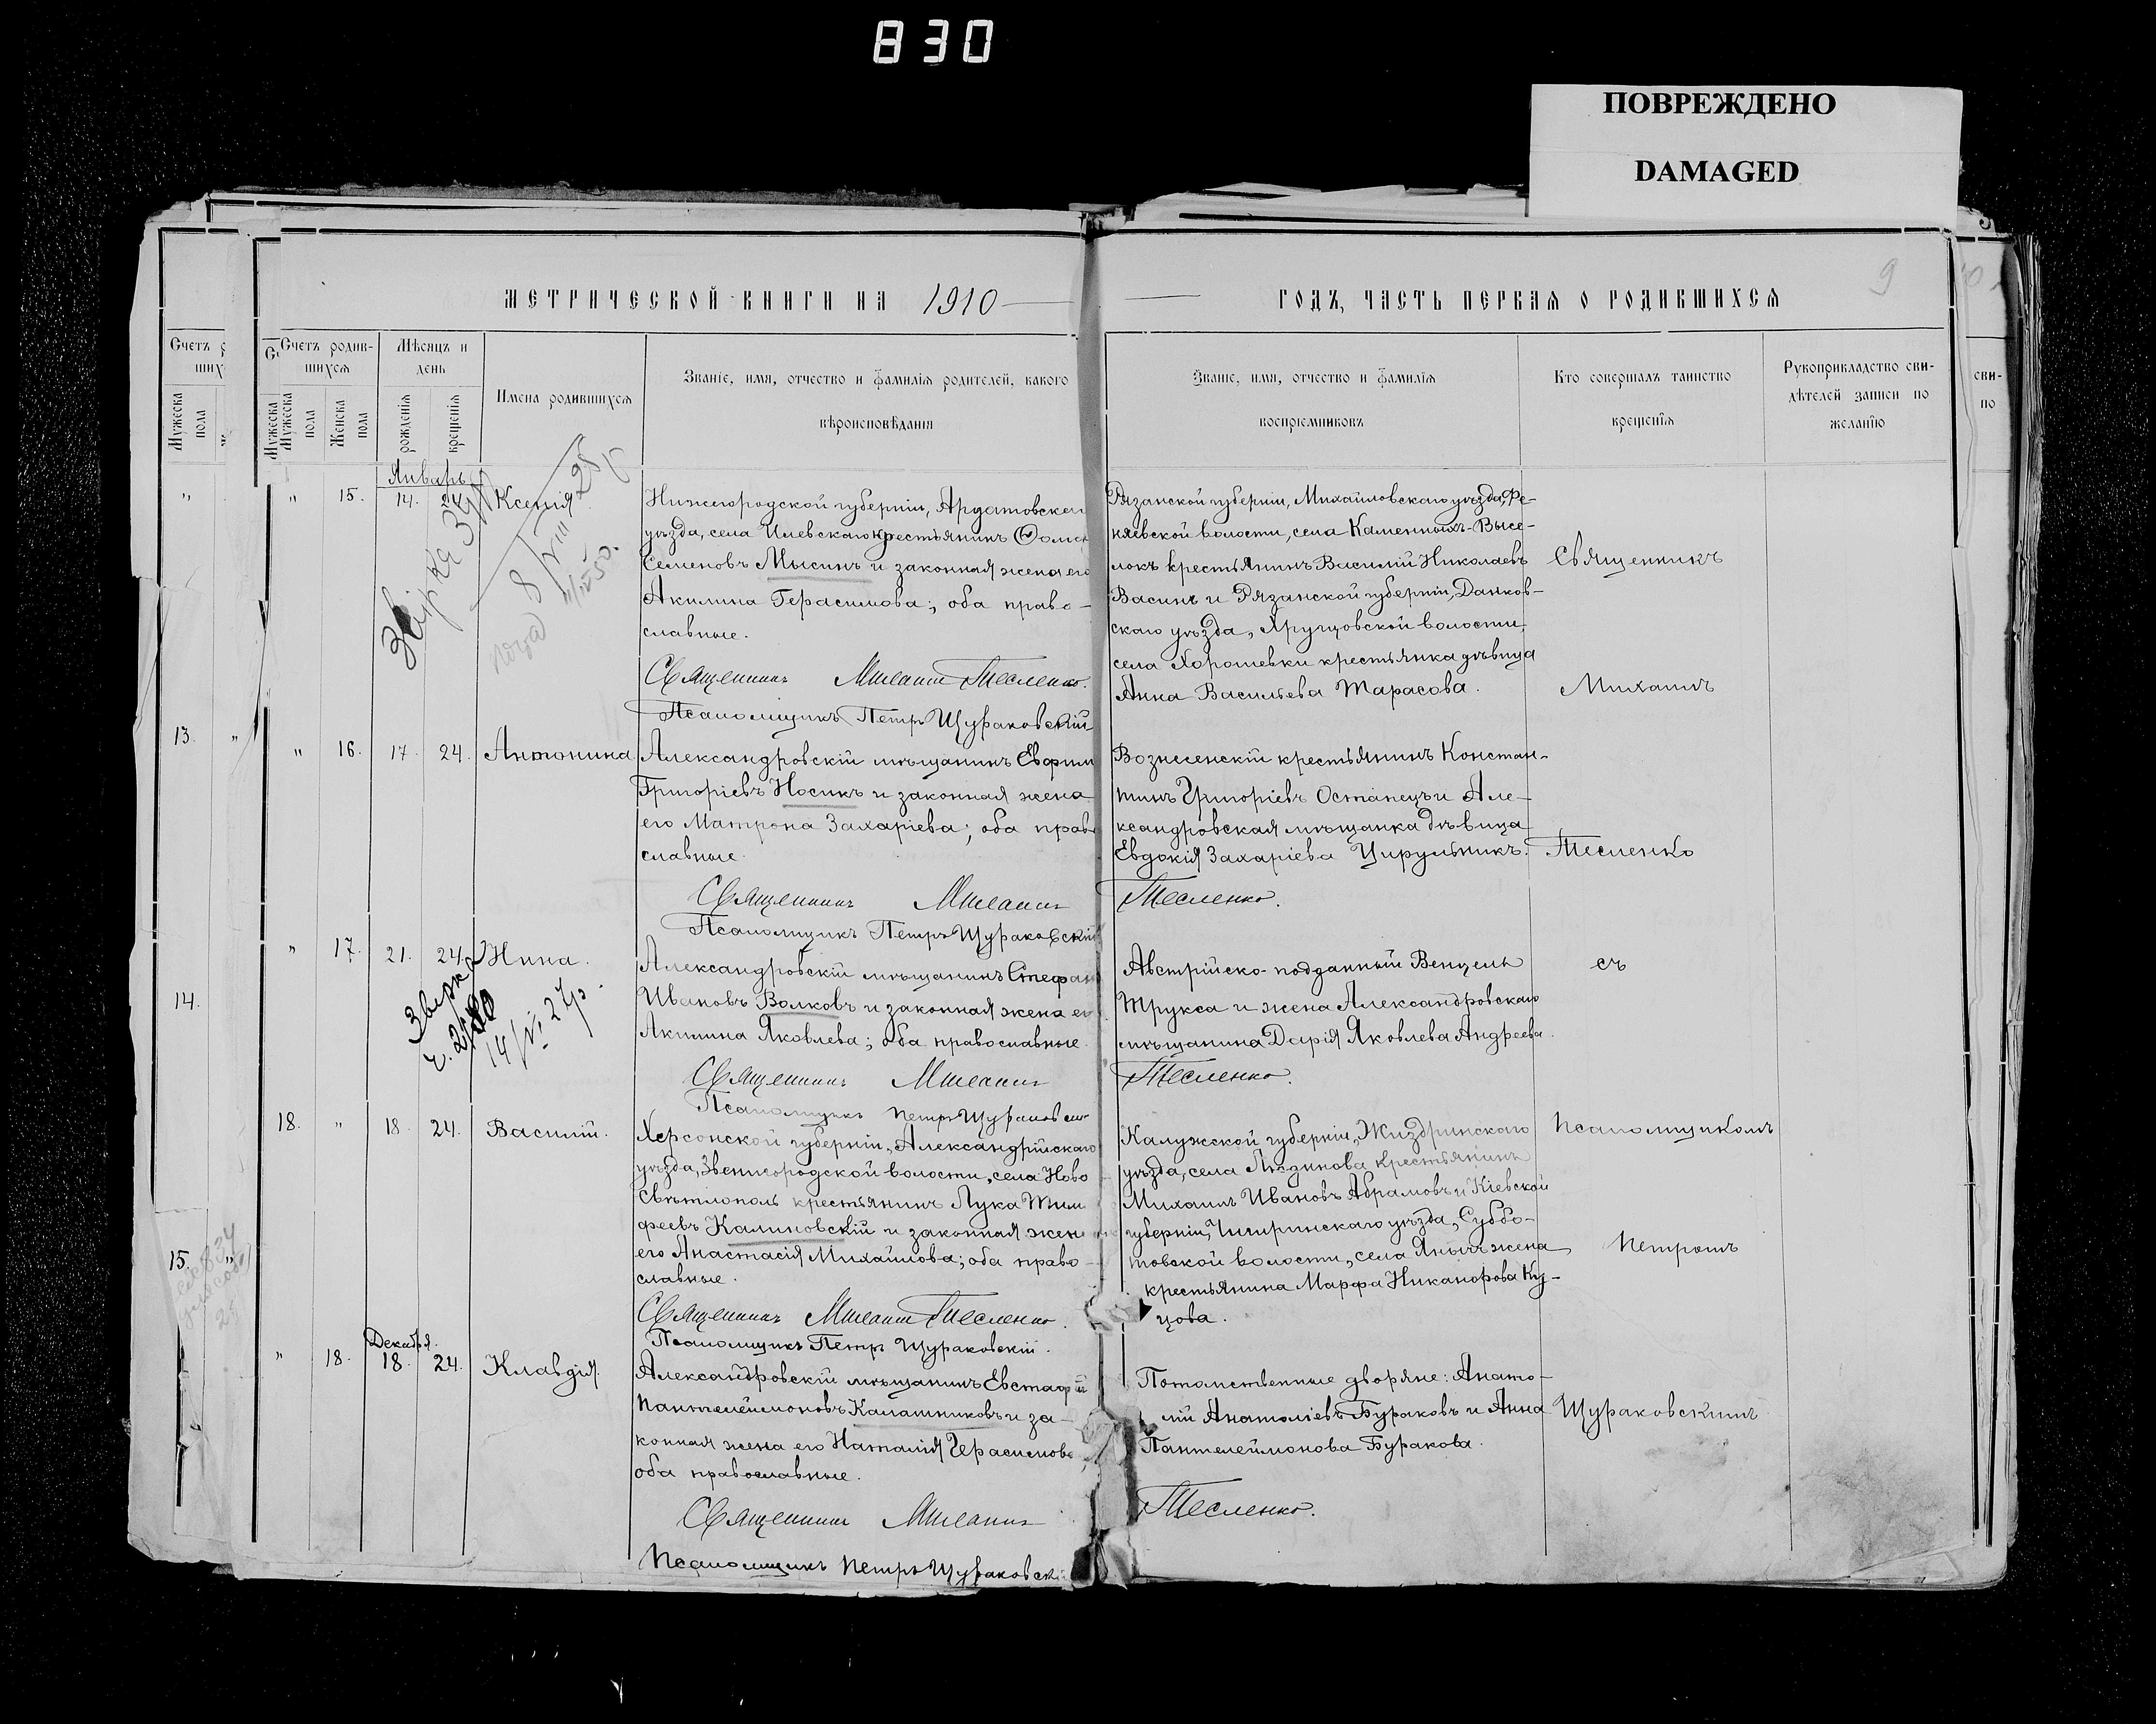 830
ПОВРЕЖДЕНО
DAMAGED
9
МЕТРИЧЕСКОЙ КНИГИ НА 1910
ГОДЪ, ЧАСТЬ ПЕРВАЯ О РОДИВШИХСЯ
Счетъ родив-
шихся
Мужеска
пола
Женска
пола
Мѣсяцъ и
день
рожденія
крещенія
Имена родившихся
Званіе, имя, отчество и фамилія родителей, какого
вѣроисповѣданія
Званіе, имя, отчество и фамилія
воспріемниковъ
Кто совершалъ таинство
крещенія
Рукоприкладство сви-
дѣтелей записи по
желанію
Январь
" 15. 14. 24. Ксенія
Нижегородской губерніи, Ардатовскаго
уѣзда, села Илевскаго крестьянинъ Ѳома
Семеновъ Мысинъ и законная жена его
Акилина Герасимова; оба право-
славные.
Священникъ Михаилъ Тесленко.
Псаломщикъ Петръ Щураковскій
Рязанской губерніи, Михайловскаго уѣзда, Фе-
няевской волости, села Каменныхъ-Высе-
локъ крестьянинъ Василій Николаевъ
Васинъ и Рязанской губерніи, Данков-
скаго уѣзда, Хрущовской волости,
села Хорошевки крестьянка дѣвица
Анна Васильева Тарасова.
Священникъ
Михаилъ
Тесленко
съ
Псаломщикомъ
Петромъ
Щураковскимъ
" 16. 17. 24. Антонина
Александровскій мѣщанинъ Евфимій
Григоріевъ Носикъ и законная жена
его Матрона Захаріева; оба право
славные.
Священникъ Михаилъ Тесленко.
Псаломщикъ Петръ Щураковскій
Вознесенскій крестьянинъ Констан-
тинъ Григоріевъ Останецъ и Але-
ксандровская мѣщанка дѣвица
Евдокія Захаріева Цирульникъ.
" 17. 21. 24. Нина.
Александровскій мѣщанинъ Стефанъ
Ивановъ Волковъ и законная жена его
Акилина Яковлева; оба православные.
Священникъ Михаилъ Тесленко.
Псаломщикъ Петръ Щураковскій
Австрійско-подданный Венцель
Трукса и жена Александровскаго
мѣщанина Дарія Яковлева Андреева.
18. " 18. 24. Василій.
Херсонской губерніи, Александрійскаго
уѣзда, Звенигородской волости, села Ново
Свѣтлополь крестьянинъ Лука Тимо
феевъ Калиновскій и законная жена
его Анастасія Михайлова; оба право-
славные.
Священникъ Михаилъ Тесленко.
Псаломщикъ Петръ Щураковскій.
Калужской губерніи, Жиздринскаго
уѣзда, села Людинова крестьянинъ
Михаилъ Ивановъ Абрамовъ и Кіевской
губерніи, Чигиринскаго уѣзда, Суббо-
товской волости, села Янычъ жена
крестьянина Марфа Никанорова Ку-
цова.
Декабря.
" 18. 18. 24. Клавдія.
Александровскій мѣщанинъ Евстафій
Пантелеймоновъ Калашниковъ и за-
конная жена его Наталія Герасимова
оба православные.
Священникъ Михаилъ Тесленко.
Псаломщикъ Петръ Щураковскій
Потомственные дворяне: Анато-
лій Анатоліевъ Бураковъ и Анна
Пантелеймонова Буракова.
13. "
14.
15. "